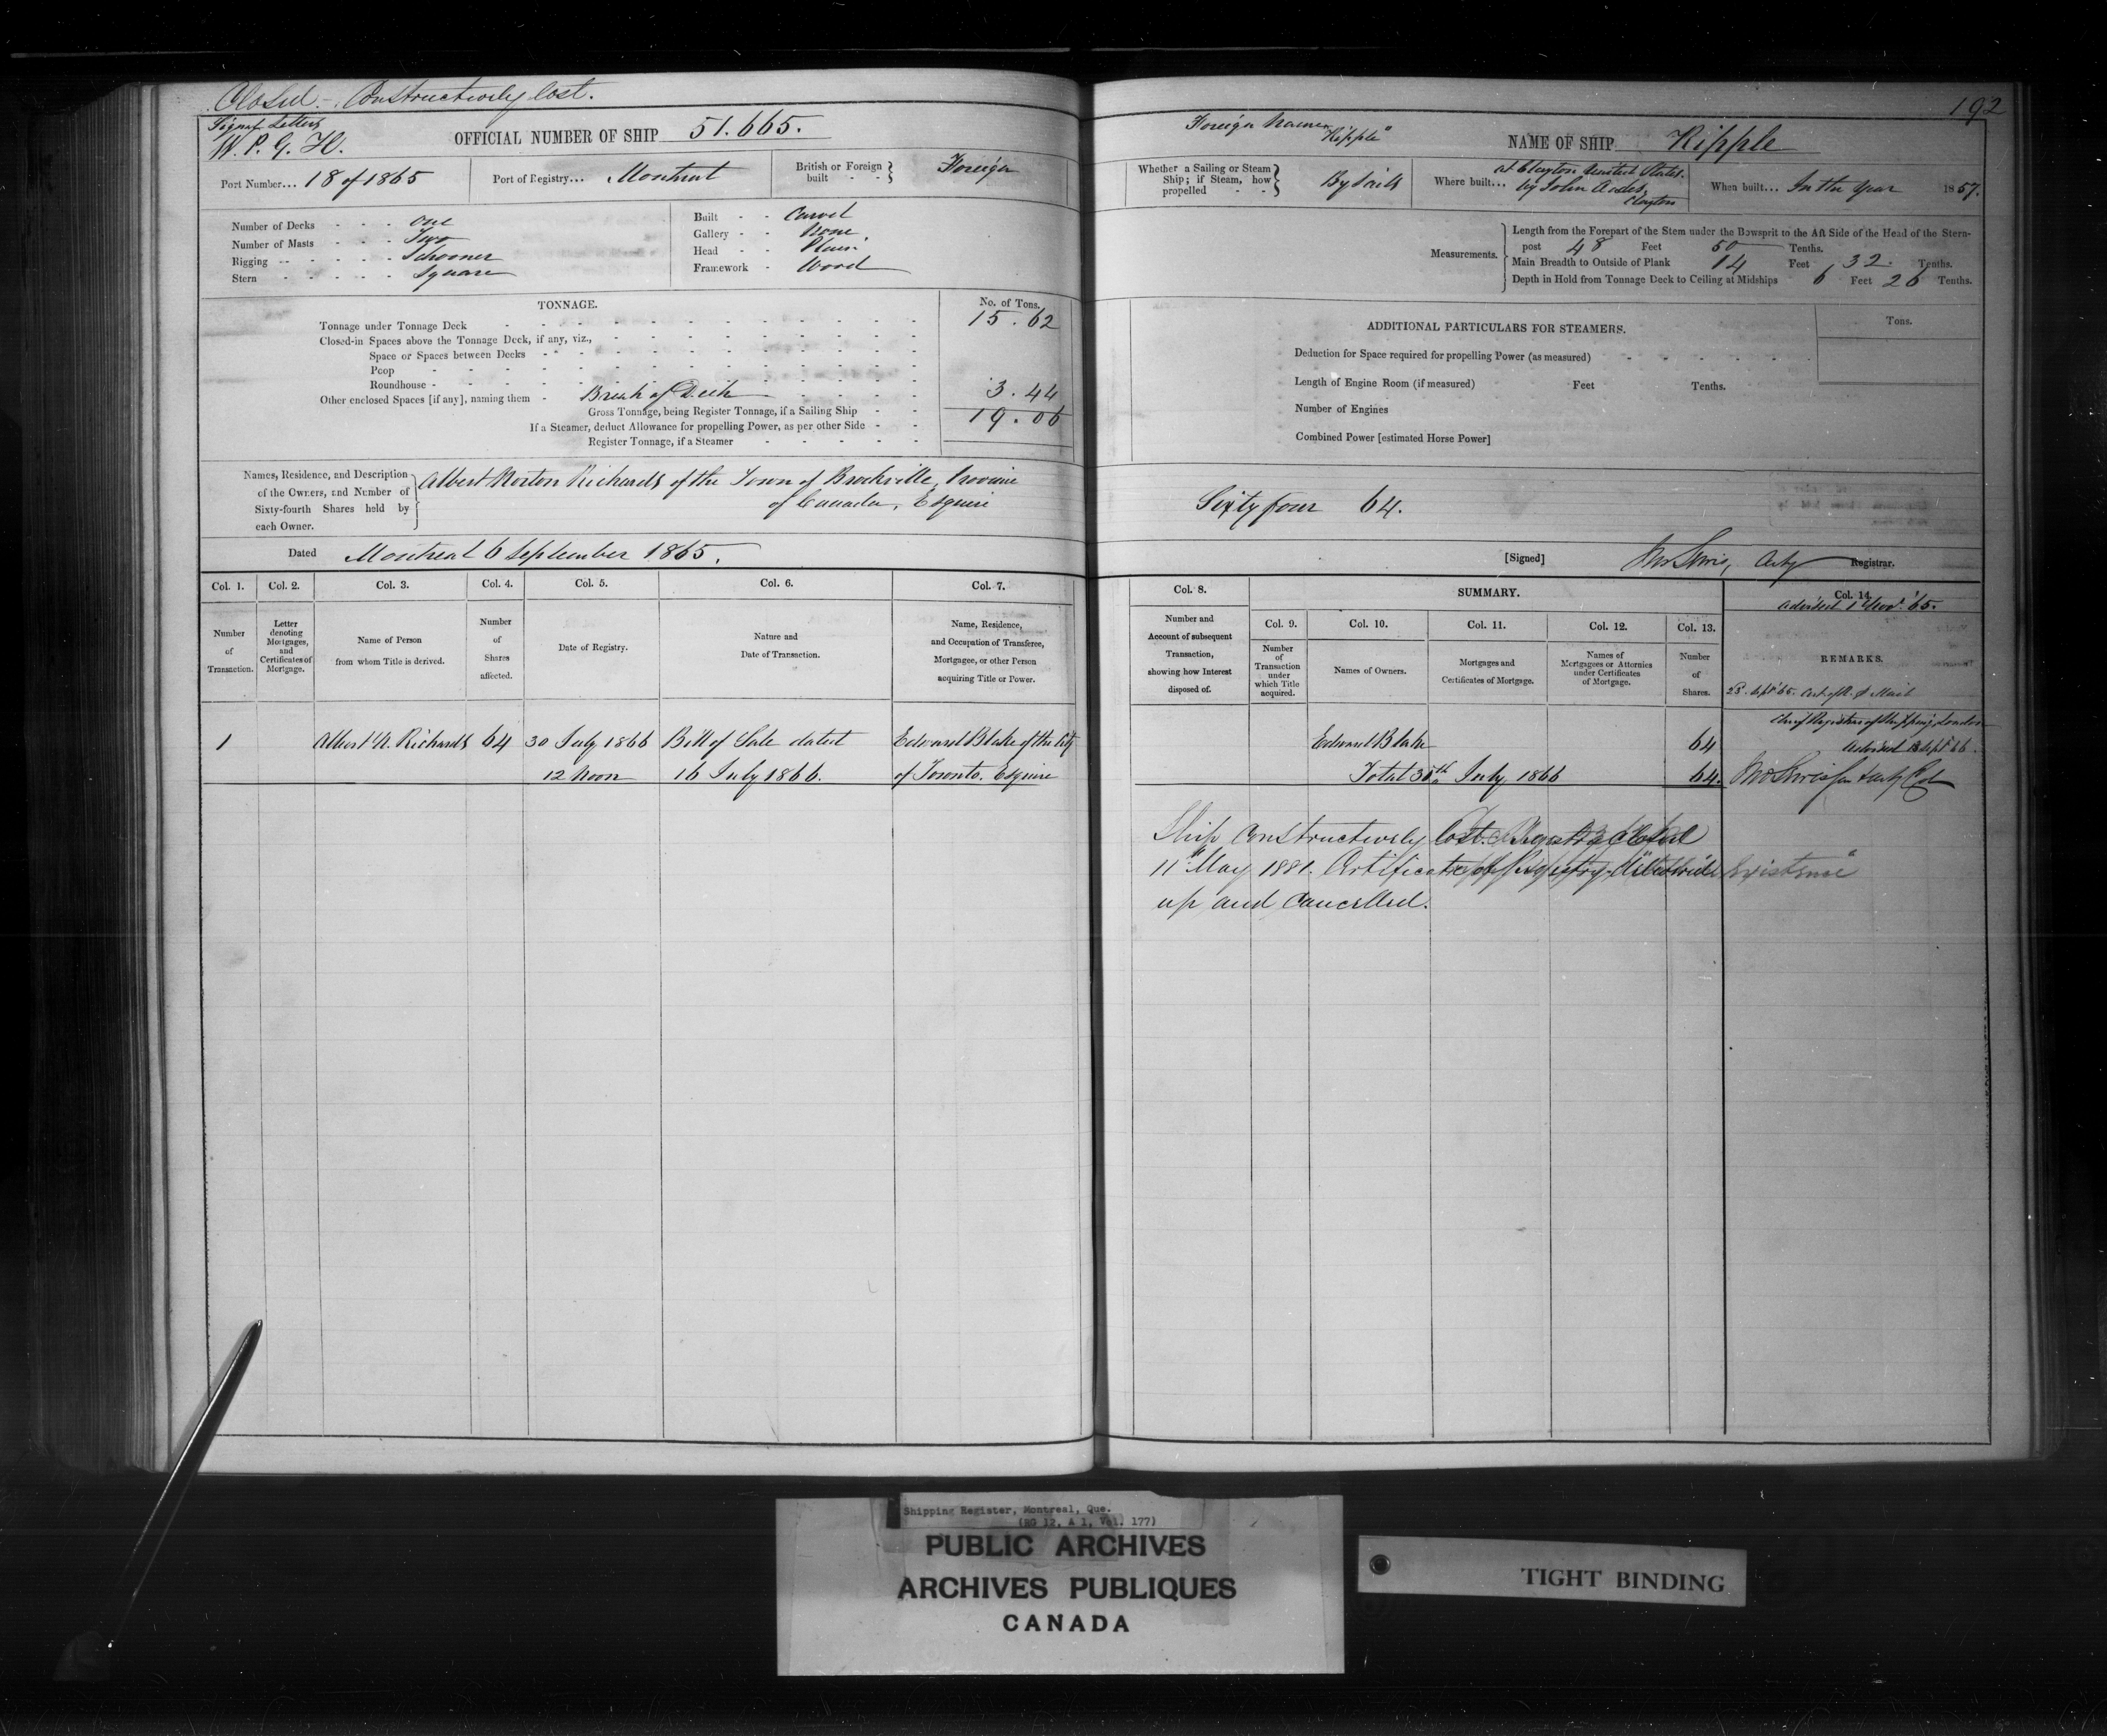 Closed.- Constructively lost.
192
Signal Letters
W. P. G. H.
OFFICIAL NUMBER OF SHIP 51.665.
Foreign Name "Ripple"
NAME OF SHIP Ripple
Port Number... 18 of 1865
Port of Registry... Montreal
British or Foreign built - - Foreign
Whether a Sailing or Steam Ship; if Steam, how propelled - - By Sails
Where built... at Clayton United States. by John
Clayton
When built... In the Year 1857.
Number of Decks - - - one
Number of Masts - - - Two
Rigging - - - - - - Schooner
Stern - - - - - Square
Built - - Carvel
Gallery - - None
Head - - Plain
Framework - Wood
Measurements.
Length from the Forepart of the Stem under the Bowsprit to the Aft Side of the Head of the Stern-
post 48 Feet 50 Tenths.
Main Breadth to Outside of Plank 14 Feet 32. Tenths.
Depth in Hold from Tonnage Deck to Ceiling at Midships 6 Feet 26 Tenths.
TONNAGE.
No. of Tons.
Tonnage under Tonnage Deck 15.62
Closed-in Spaces above the Tonnage Deck, if any, viz.,
Space or Spaces between Decks
Poop
Roundhouse
Other enclosed Spaces [if any], naming them - Break of Deck 3.44
Gross Tonnage, being Register Tonnage, if a Sailing Ship 19.06
If a Steamer, deduct Allowance for propelling Power, as per other Side
Register Tonnage, if a Steamer
ADDITIONAL PARTICULARS FOR STEAMERS.
Tons.
Deduction for Space required for propelling Power (as measured)
Length of Engine Room (if measured) Feet Tenths.
Number of Engines
Combined Power [estimated Horse Power]
Names, Residence, and Description
of the Owners, and Number of
Sixty-fourth Shares held by
each Owner.
Albert Norton Richards of the Town of Brockville, Province
of Canada, Esquire
Sixty four 64.
Dated Montreal 6 September 1865.
[Signed] Registrar.
Col. 1. Col. 2. Col. 3. Col. 4. Col. 5. Col. 6. Col. 7.
Number of Transaction.
Letter denoting Mortgages, and Certificates of Mortgage.
Name of Person from whom Title is derived.
Number of Shares affected.
Date of Registry.
Nature and Date of Transaction.
Name, Residence, and Occupation of Transferee, Mortgagee, or other Person acquiring Title or Power.
Col. 8.
Number and Account of subsequent Transaction, showing how Interest disposed of.
SUMMARY.
Col. 9. Col. 10. Col. 11. Col. 12. Col. 13.
Number of Transaction under which Title acquired.
Names of Owners.
Mortgages and Certificates of Mortgage.
Names of Mortgagees or Attornies under Certificates of Mortgage.
Number of Shares.
Col. 14.
Advised 1 Nov. '65.
REMARKS.
1 Albert N. Richards 64 30 July 1866 Bill of Sale dated Edward Blake of the City
12 Noon 16 July 1866. of Toronto. Esquire
Edward Blake 64
Total 30th July 1866 64.
Chief Registrar of Shipping, London
Advised Sept. 66.
Ship Constructively lost. Registry closed
11th May 1881. Certificate of Registry
up and Cancelled.
Shipping Register, Montreal, Que.
(RG 12, A 1, Vol. 177)
PUBLIC ARCHIVES
ARCHIVES PUBLIQUES
CANADA
TIGHT BINDING